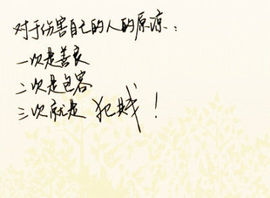 对于伤害自己的人的原谅：
一次是善良
二次是包容
三次就是 犯贱！